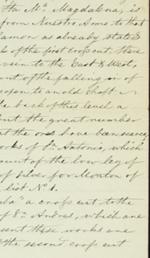 the Ma. Magdalena, is
from Nuestro Amo to that
Ramon as already stated
of the first crosscut there
vein to the East & West,
nt of the falling in of
to an old shaft
the back of this level a
but the great number
at the old bonanza
works of Sn. Antonio, which
ount of the low ley of
of silver per Monton of
list No. 1.
a crosscut to the
of Sn. Andres, which are
sent these works are
the second crosscut